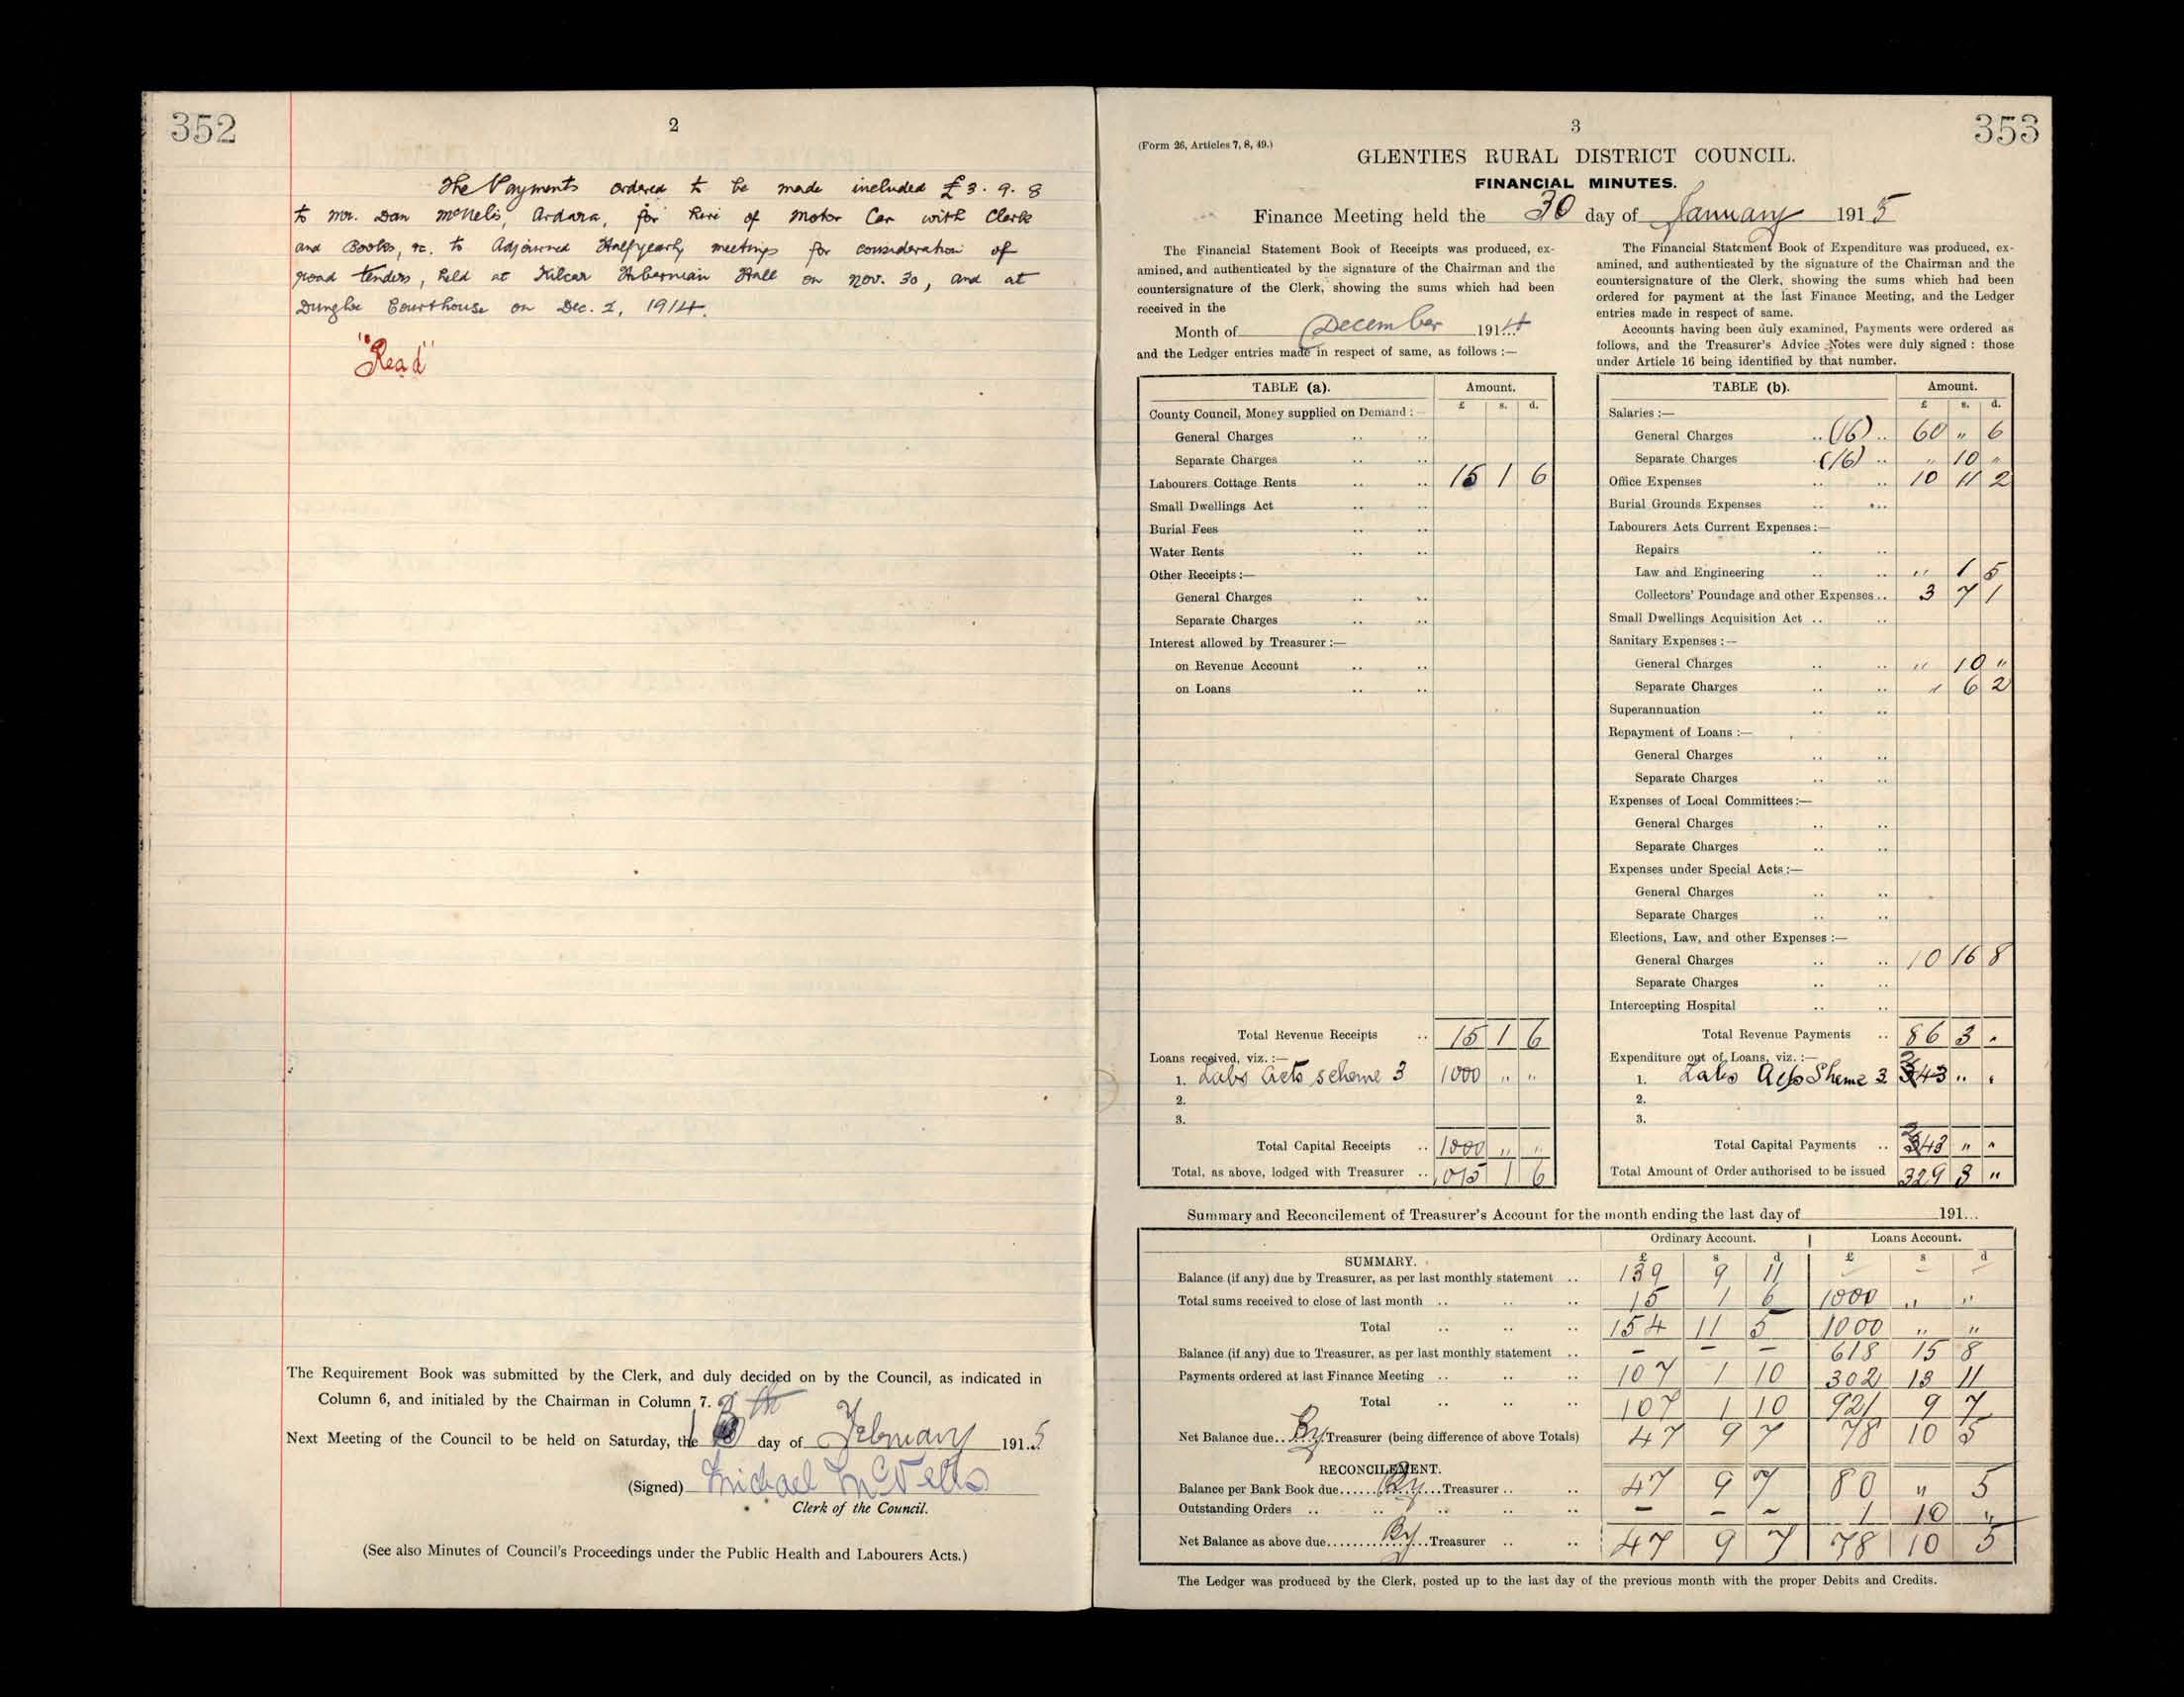 352
2
The Payments ordered to be made included £3. 9. 8
to Mr. Dan McNelis, Ardara, for hire of Motor Car with Clerk
and Books, &c. to Adjourned Halfyearly meetings for consideration of
road tenders, held at Kilcar Hibernian Hall on Nov. 30, and at
Dungloe Courthouse on Dec. 1, 1914.
"Read"
The Requirement Book was submitted by the Clerk, and duly decided on by the Council, as indicated in
Column 6, and initialed by the Chairman in Column 7.
Next Meeting of the Council to be held on Saturday, the day of February 1915
(Signed) Michael McNelis
Clerk of the Council.
(See also Minutes of Council's Proceedings under the Public Health and Labourers Acts.)
3
353
(Form 26, Articles 7, 8, 49.)
GLENTIES RURAL DISTRICT COUNCIL.
FINANCIAL MINUTES.
Finance Meeting held the 30 day of January 1915
The Financial Statement Book of Receipts was produced, ex-
amined, and authenticated by the signature of the Chairman and the
countersignature of the Clerk, showing the sums which had been
received in the
Month of December 1914
and the Ledger entries made in respect of same, as follows :—
TABLE (a). Amount.
£ s. d.
County Council, Money supplied on Demand :—
General Charges .. ..
Separate Charges .. ..
Labourers Cottage Rents .. .. 15 1 6
Small Dwellings Act .. ..
Burial Fees .. ..
Water Rents .. ..
Other Receipts :—
General Charges .. ..
Separate Charges .. ..
Interest allowed by Treasurer :—
on Revenue Account .. ..
on Loans .. ..
Total Revenue Receipts .. 15 1 6
Loans received, viz. :—
1. Labs Acts scheme 3 1000 " "
2.
3.
Total Capital Receipts .. 1000 " "
Total, as above, lodged with Treasurer .. 1015 1 6
The Financial Statement Book of Expenditure was produced, ex-
amined, and authenticated by the signature of the Chairman and the
countersignature of the Clerk, showing the sums which had been
ordered for payment at the last Finance Meeting, and the Ledger
entries made in respect of same.
Accounts having been duly examined, Payments were ordered as
follows, and the Treasurer's Advice Notes were duly signed : those
under Article 16 being identified by that number.
TABLE (b). Amount.
£ s. d.
Salaries :—
General Charges ..(16).. 60 " 6
Separate Charges .(16) .. " 10 "
Office Expenses .. .. 10 11 2
Burial Grounds Expenses .. ..
Labourers Acts Current Expenses :—
Repairs .. ..
Law and Engineering .. .. " 1 5
Collectors' Poundage and other Expenses .. 3 7 1
Small Dwellings Acquisition Act .. ..
Sanitary Expenses :—
General Charges .. .. " 10 "
Separate Charges .. .. " 6 2
Superannuation .. ..
Repayment of Loans :—
General Charges .. ..
Separate Charges .. ..
Expenses of Local Committees :—
General Charges .. ..
Separate Charges .. ..
Expenses under Special Acts :—
General Charges .. ..
Separate Charges .. ..
Elections, Law, and other Expenses :—
General Charges .. .. 10 16 8
Separate Charges .. ..
Intercepting Hospital .. ..
Total Revenue Payments .. 86 3 "
Expenditure out of Loans, viz. :—
1. Labs Acts Sheme 3 243 " "
2.
3.
Total Capital Payments .. 243 " "
Total Amount of Order authorised to be issued 329 3 "
Summary and Reconcilement of Treasurer's Account for the month ending the last day of 191...
Ordinary Account. Loans Account.
SUMMARY. £ s d £ s d
Balance (if any) due by Treasurer, as per last monthly statement .. 139 9 11 – – –
Total sums received to close of last month .. .. .. 15 1 6 1000 " "
Total .. .. .. 154 11 5 1000 " "
Balance (if any) due to Treasurer, as per last monthly statement .. – – – 618 15 8
Payments ordered at last Finance Meeting .. .. .. 107 1 10 302 13 11
Total .. .. .. 107 1 10 921 9 7
Net Balance due..By..Treasurer (being difference of above Totals) 47 9 7 78 10 5
RECONCILEMENT.
Balance per Bank Book due......By....Treasurer .. .. 47 9 7 80 " 5
Outstanding Orders .. .. .. .. .. – – – 1 10 "
Net Balance as above due.........By...Treasurer .. .. 47 9 7 78 10 5
The Ledger was produced by the Clerk, posted up to the last day of the previous month with the proper Debits and Credits.